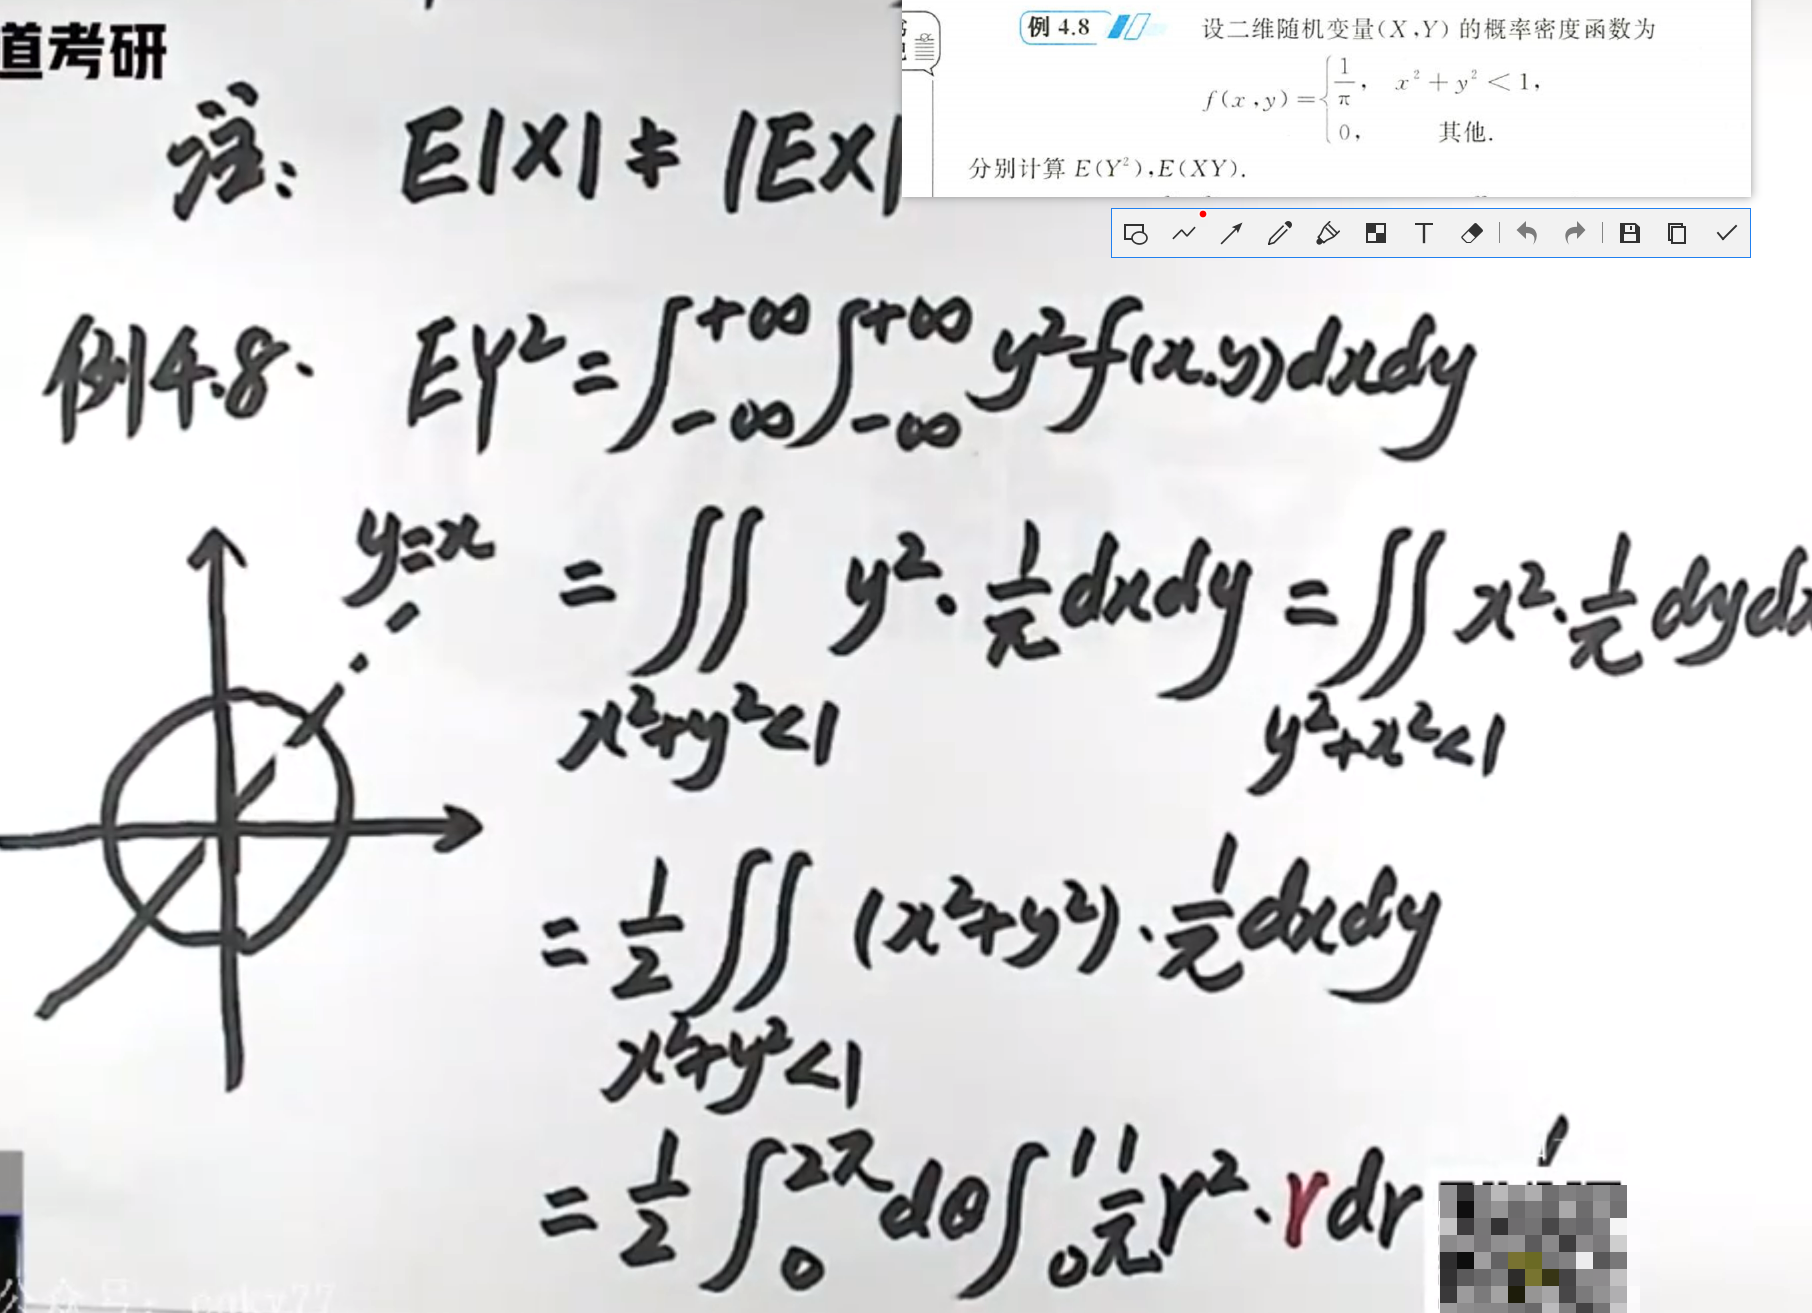 道考研
例 4.8 设二维随机变量(X,Y)的概率密度函数为
f(x,y)={1/π, x²+y²<1,
0, 其他.
分别计算 E(Y²),E(XY).
注: E|X| ≠ |EX|
例4.8. EY² = ∫_{-∞}^{+∞} ∫_{-∞}^{+∞} y²f(x,y)dxdy
y=x
= ∬_{x²+y²<1} y²·1/π dxdy = ∬_{y²+x²<1} x²·1/π dydx
= 1/2 ∬_{x²+y²<1} (x²+y²)·1/π dxdy
= 1/2 ∫_0^{2π} dθ ∫_0^1 1/π r²·r dr